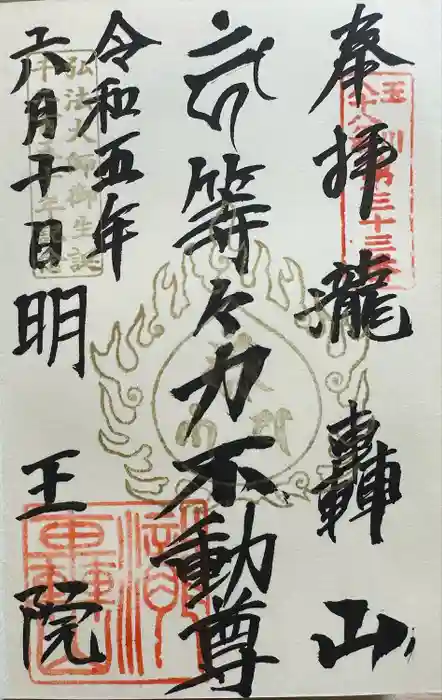 奉拝瀧轟山
玉川八十八ヶ所第三十三番
等々力不動尊
令和五年
六月十日
弘法大師御生誕
明王院